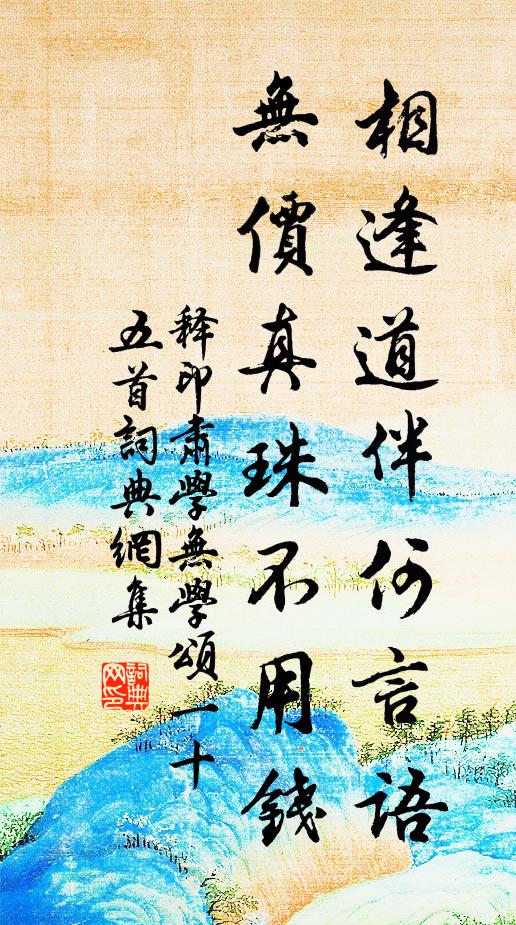 相逢道伴何言語
無價真珠不用錢
釋印肅學無學頌一十
五首詞典網集
詞典網印